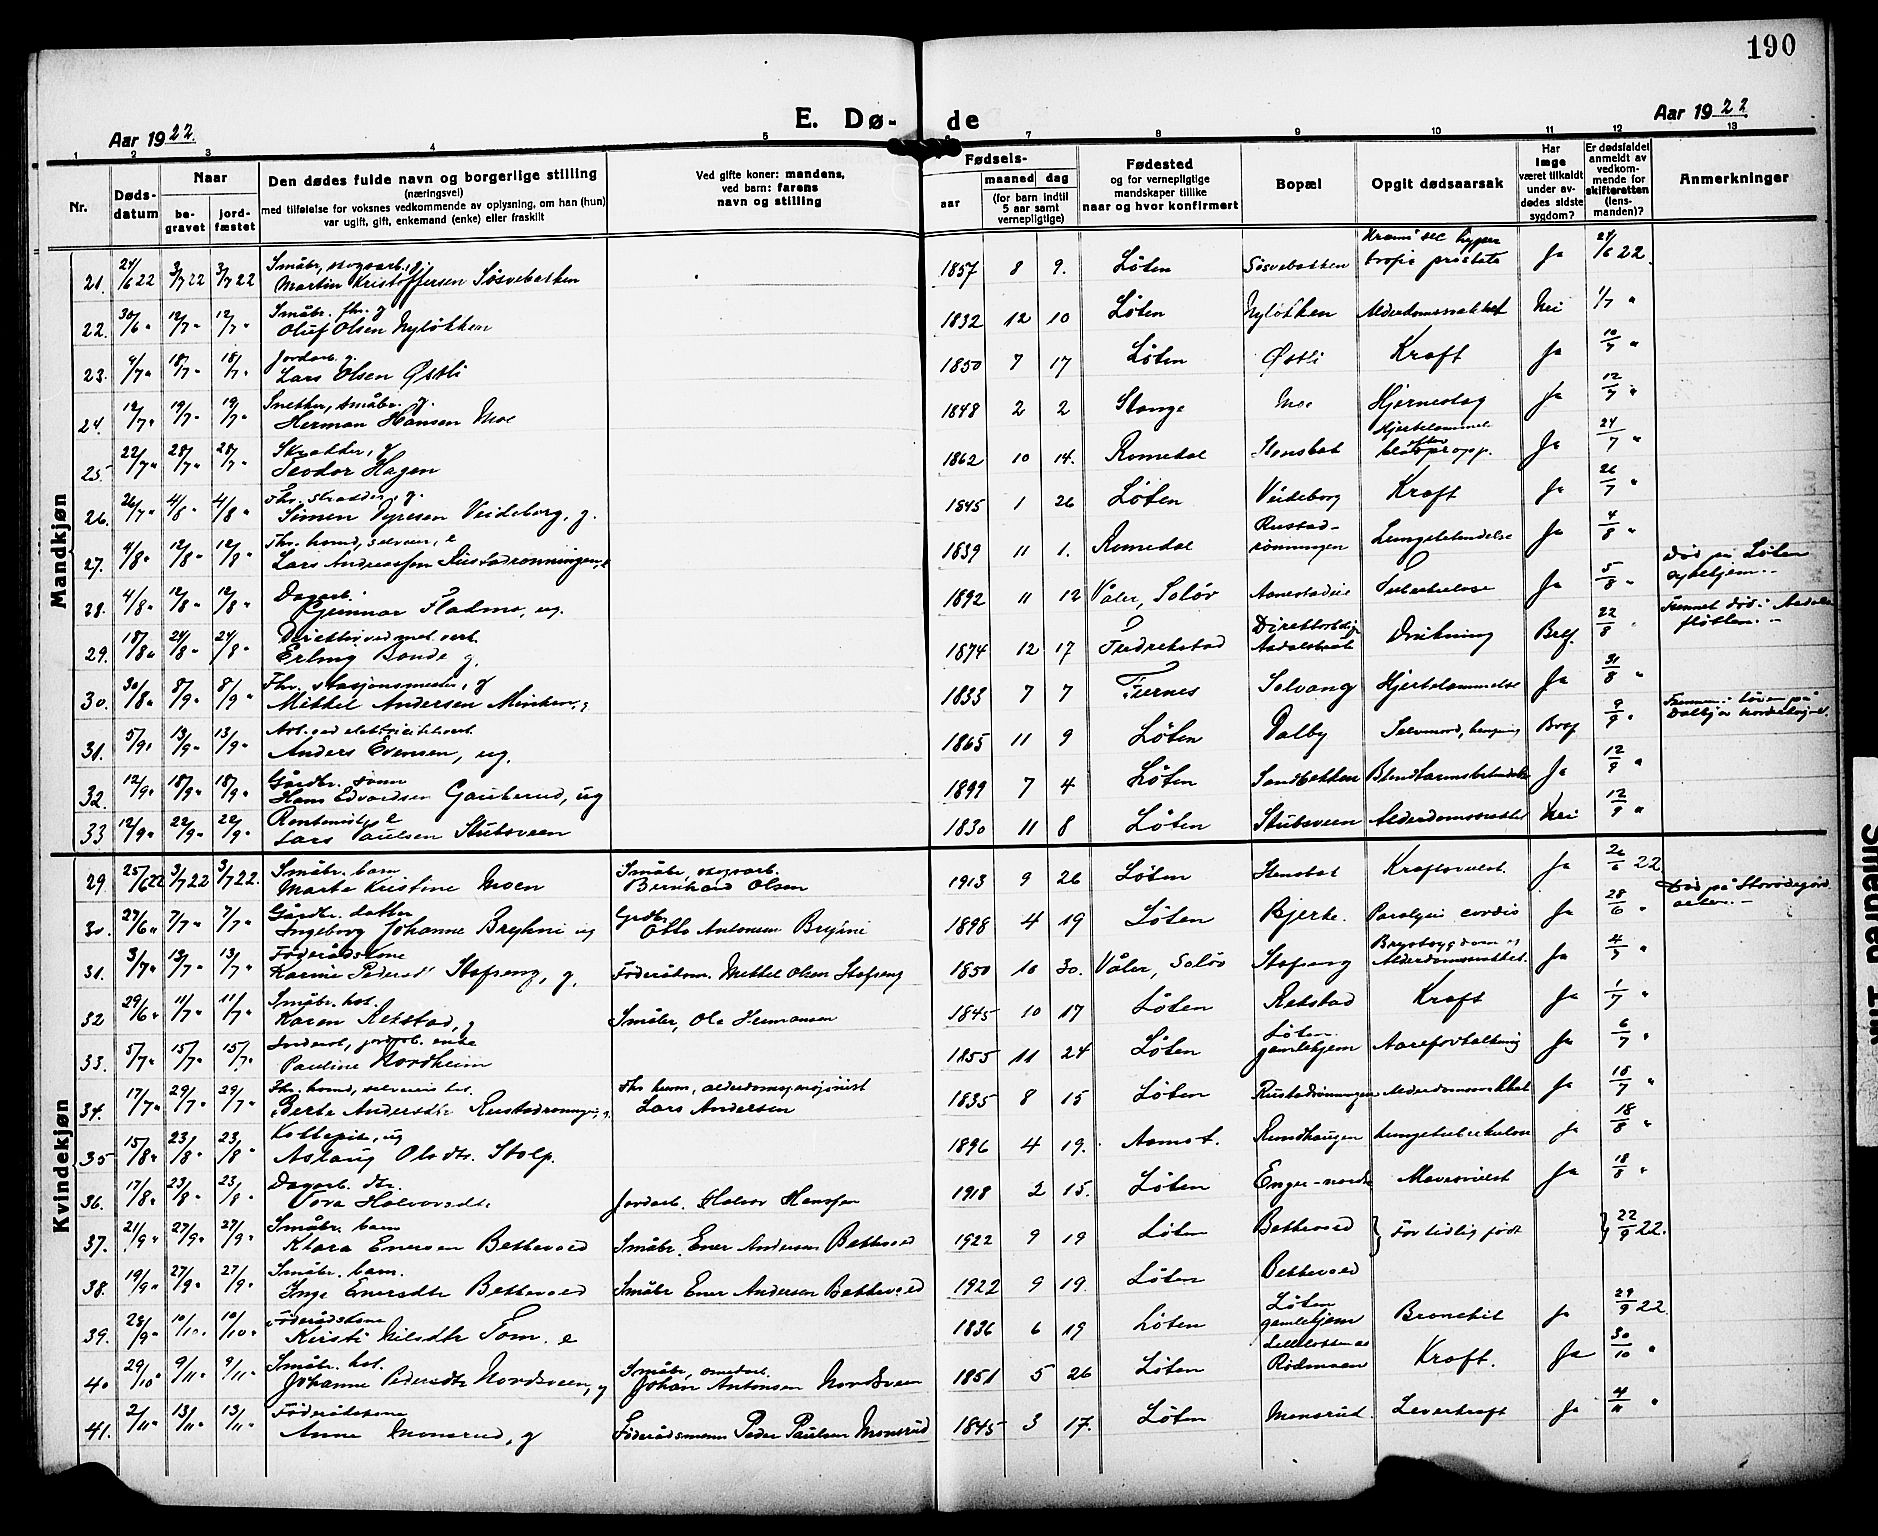 190
E. Dø- de
Aar 1922.
Aar 1922
1 2 3 4 5 7 8 9 10 11 12 13
Nr.
Døds-
datum
Naar
be-
gravet
jord-
fæstet
Den dødes fulde navn og borgerlige stilling
(næringsvei)
med tilføielse for voksnes vedkommende av oplysning, om han (hun)
var ugift, gift, enkemand (enke) eller fraskilt
Ved gifte koner: mandens,
ved barn: farens
navn og stilling
Fødsels-
aar
maaned
dag
(for barn indtil
5 aar samt
vernepligtige)
Fødested
og for vernepligtige
mandskaper tillike
naar og hvor konfirmert
Bopæl
Opgit dødsaarsak
Har
læge
været tilkaldt
under av-
dødes sidste
sygdom?
Er dødsfaldet
anmeldt av
vedkom-
mende for
skifteretten
(lens-
manden)?
Anmerkninger
Mandkjøn
21. 24/6 22 3/7 22 3/7 22 Småbr., skogsarb., g.
Martin Kristoffersen Søsvebakken 1857 8 9. Løten Søsvebakken Ja 24/6 22.
22. 30/6 " 12/7 " 12/7 " Småbr. fhr. g
Oluf Olsen Nyløkken 1832 12 10 Løten Nyløkken Alderdomssvakhet Nei 1/7 "
23. 9/7 " 18/7 " 18/7 " Jordarb. g.
Lars Olsen Østli 1850 7 17 Løten Østli Kræft Ja 10/7 "
24. 12/7 " 19/7 " 19/7 " Snekker, småbr. g.
Herman Hansen Moe 1848 2 2 Stange Moe Hjerneslag Ja 12/7 "
25 22/7 " 28/7 " 28/7 " Skrædder, g
Teodor Hagen 1862 10 14. Romedal Stensbæk Hjertelammelse
efter
blodpropp. Ja 24/7 "
26. 26/7 " 4/8 " 4/8 " Fhr. skrædder, g.
Simen Veideborg, g. 1845 1 26 Løten Veideborg Kræft Ja 26/7 "
27. 4/8 " 12/8 " 12/8 " Fhr. homd, selveier, e
Lars Anderssen Rustadrønningen, e 1839 11 1. Romedal Rustad-
rønningen Lungebetændelse Ja 4/8 "
28. 4/8 " 12/8 " 12/8 " Dagarb.
Gunnar Fladmo, ug. 1892 11 12 Våler, Soløv Aanestadeie Tuberkulose Ja 5/8 " Død på Løten
sykehjem.-
29. 18/8 " 24/8 " 24/8 " Direktør ved met. verk.
Erling Bonde g. 1874 12 17 Fredrikstad Direktørbolig
Aadalsbruk Drukning Bref. 22/8 " Funnet død i Aadals
fløtten.-
30. 30/8 " 8/9 " 8/9 " Fhr. stasjonsmester, g
Mikkel Andersen Minken, g 1833 7 7 Furnes Solvang Hjertelammelse Ja 31/8 "
31. 5/9 " 13/9 " 13/9 " Arb. ved elektricitetsverk.
Anders Evensen, ug. 1865 11 9 Løten Dalby Selvmord, hengning Bref 9/9 "
32. 12/9 " 18/9 " 18/9 " Gårdbr. sønn
Hans Edvardsen Gauterud, ug 1899 7 4 Løten Sandbakken Blindtarmsbetændelse Ja 12/9 "
33 12/9 " 22/9 " 22/9 " Rentenist, e
Lars Paulsen Stubsveen 1830 11 8 Løten Stubsveen Alderdomssvakhet Nei 12/9 "
Kvindekjøn
29. 25/6 22 3/7 22 3/7 22. Småbr. barn
Marta Kristine Moen Småbr., skogsarb.
Bernhard Olsen 1913 9 26 Løten Stensbæk Kraftsvulst Ja 26/6 22.
30. 27/6 " 7/7 " 7/7 " Gårdbr. datter
Ingeborg Johanne Bryhni ug Grdbr.
Otto Antonsen Bryhni 1898 4 19 Løten Bjerke. Paralysi cordis Ja 28/6 " Død på
31. 3/7 " 13/7 " 13/7 " Føderådskone
Karine Pedersdt Stafseng, g. Føderådsm. Mikkel Olsen Stafseng 1850 10 30. Våler, Soløv Stafseng Brystsygdom og
Alderdomssvakhet. Ja 4/7 "
32 29/6 " 11/7 " 11/7 " Småbr. kone
Karen Rekstad, g Småbr, Ole Hermansen 1845 10 17 Løten Rekstad Kræft Ja 1/7 "
33. 5/7 " 15/7 " 15/7 " enke
Pauline Nordheim 1855 11 24 Løten Løten
gamlehjem Aareforkalkning Ja 6/7 "
34. 17/7 " 29/7 " 29/7 " Fhr. homd, selveiers kone
Berte Andersdtr Rustadrønningen, g. Fhr. husm, alderdomspensjonist
Lars Andersen 1835 8 15 Løten Rustadrønningen Alderdomssvakhet Ja 18/7 "
35 15/8 " 23/8 " 23/8 " ug
Aslaug Olsdtr. Stolp. 1896 4 19. Aamot. Rundhaugen Lungetuberkulose Ja 18/8 "
36. 17/8 " 23/8 " 23/8 " Dagarb. dtr.
Vera Halvorsdtr. Jordarb. Halvor Hanssen 1918 2 15. Løten Enger-nordre Mavesvulst Ja 18/8 "
37. 21/9 " 27/9 " 27/9 " Småbr. barn
Klara Enersen Bekkevold Småbr. Ener Andersen Bekkevold 1922 9 19 Løten Bekkevold } For tidlig født } 22/9 22.
38. 19/9 " 27/9 " 27/9 " Småbr. barn.
Inga Enersdtr Bekkevold Småbr Ener Andersen Bekkevold 1922 9 19. Løten Bekkevold
39. 28/9 " 10/10 " 10/10 " Føderådskone
Kirsti Nilsdtr Tom. e 1836 6 19 Løten Løten
gamlehjem Bronkit Ja 29/9 22.
40 29/10 " 9/11 " 9/11 " Småbr. kone.
Johanne Pedersdtr Nordsveen, g Småbr,
Johan Antonsen Nordsveen 1851 5 26 Løten Rødmoen Kræft. Ja 30/10 "
41. 2/11 " 13/11 " 13/11 " Føderådskone
Anne Monsrud, g Føderådsmann Peder Paulsen Monsrud 1845 3 17. Løten Monsrud. Leverkræft Ja 4/11 "